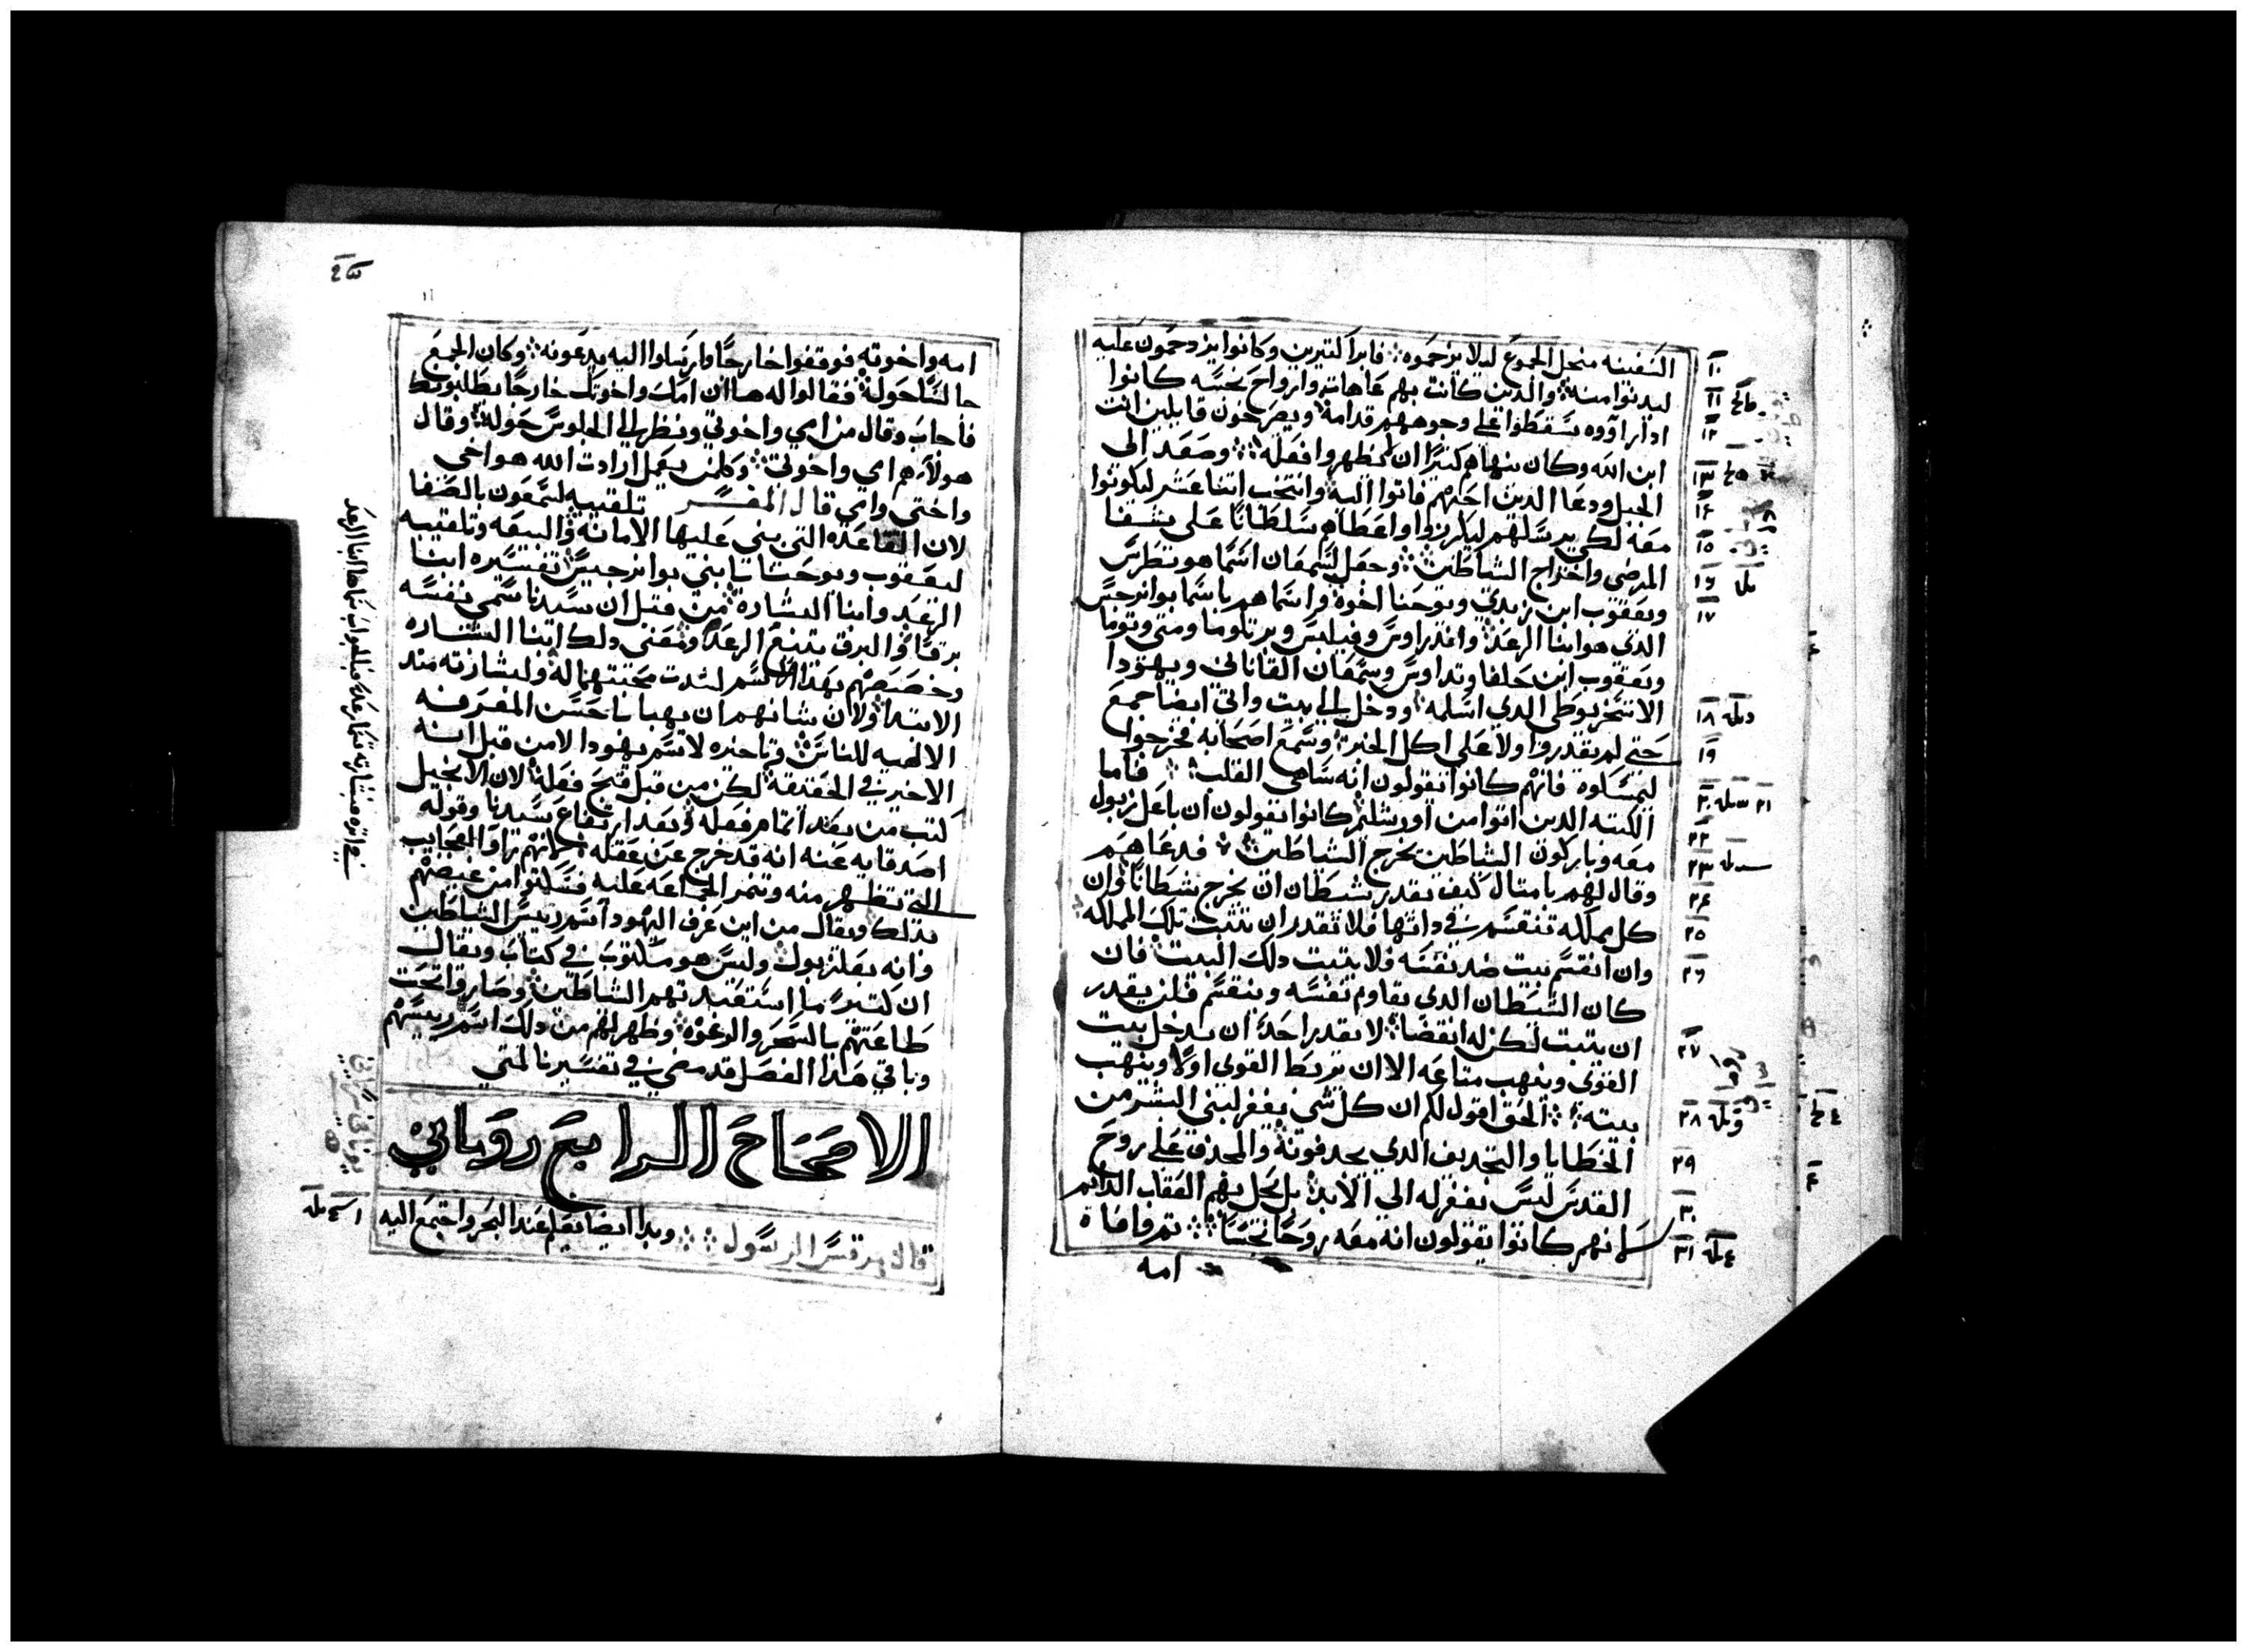 السفينه من اجل الجموع ليلا يزحموه فابرا كتيرين وكانوا يزدحمون عليه
ليدنوا منه والدين كانت بهم عاهات وارواح نجسه كانوا
ادا راووه سقطوا على وجوههم قدامه ويصرخون قايلين انت
ابن الله وكان ينهاهم كتيرًا ان لا يظهروا فعله وصعد الى
الجبل ودعا الدين احبهم فاتوا اليه وانتخب اتنا عشر ليكونوا
معه لكي يرسلهم ليكرزوا واعطاهم سلطانًا على شفا
المرضى واخراج الشياطين وجعل لسمعان اسمًا هو بطرس
ويعقوب ابن زبدي ويوحنا اخوه واسماهم باسما بوانرجس
الدي هو ابنا الرعد واندراوس وفيلبس وبرتلوما ومتى وتوما
ويعقوب ابن حلفا وتداوس وسمعان القاناني ويهودا
الاسخريوطي الدي اسلمه ودخل الى بيت واتى ايضا جمع
حتى لم يقدروا ولا على اكل الخبز وسمع اصحابه فخرجوا
ليمسكوه فانهم كانوا يقولون انه ساهى القلب فاما
الكتبه الدين اتوا من اورشليم كانوا يقولون ان باعل زبول
معه وباركون الشياطين يخرج الشياطين فدعاهم
وقال لهم بامتال كيف يقدر شيطان ان يخرج شيطانًا وان
كل مملكه تنقسم في داتها فلا تقدر ان تتبت تلك المملكه
وان انقسم بيت ضد نفسه فلا يتبت دلك البيت فان
كان الشيطان الدي يقاوم نفسه وينقسم فلن يقدر
ان يتبت لكن له انقضا لا يقدر احد ان يدخل بيت
القوى وينهب متاعه الا ان يربط القوى اولًا وينهب
بيته الحق اقول لكم ان كل شى يغفر لبني البشر من
الخطايا والتجديف الدي يجدفونه والمجدف على روح
القدس ليس يغفر له الى الابد بل يحل بهم العقاب الدايم
لانهم كانوا يقولون انه معه روحًا نجسًا تم وافاه
امه
١٠
١١
١٢
١٣
١٤
١٥
١٦
١٧
١٨
١٩
٢٠
٢٢
٢٣
٢٤
٢٥
٢٦
٢٧
٢٨
٢٩
٣٠
٣١
امه واخوته فوقفوا خارجًا وارسلوا اليه يدعونه وكان الجمع
جالسًا حوله فقالوا له ها ان امك واخوتك خارجًا يطلبونك
فاجاب وقال من امي واخوتي ونظر الى الجلوس حوله وقال
هولاء هم امي واخوتي وكلمن يعمل ارادت الله هو اخي
واختي وامي قال المفسر تلقيبه لسمعون بالصفا
لان القاعده التي بني عليها الامانه والبيعه وتلقيبه
ليعقوب ويوحنا بابني بوانرجيس تفسيره ابنا
الرعد وابنا البشاره من قبل ان سيدنا سمى نفسه
برقًا والبرق يتبع الرعد ومعنى دلك ابنا البشاره
وخصصهم بهدا الاسم لشدت محبتهما له ولبشارته مند
الابتدا ولان شانهم ان يهبا باحسن المعرفه
الالهيه للناس وتاخيره لاسم يهودا لا من قبل انه
الاخير في الحقيقه لكن من قبل قبح فعله لان الانجيل
كتب من بعد اتمام فعله وبعد ارتفاع سيدنا وقوله
اصدقايه عنه انه قد خرج عن عقله لانهم راوا العجايب
التي تظهر منه وتنمر الجماعه عليه فسكتوا من غيضهم
بدلك ويقال من اين عرف اليهود اسم رييس الشياطين
وانه بعلزبول وليس هو مكتوب في كتاب ويقال
ان كتيرًا ما استعبدتهم الشياطين وصاروا تحت
طاعتهم بالسحر والرغوه وظهر لهم من دلك اسم رييسهم
وباقي هدا الفصل قد مضى في تفسيرنا لمتي
الاصحاح الرابع روماني
قال مرقس الرسول وبدا ايضا يعلم عند البحر واجتمع اليه